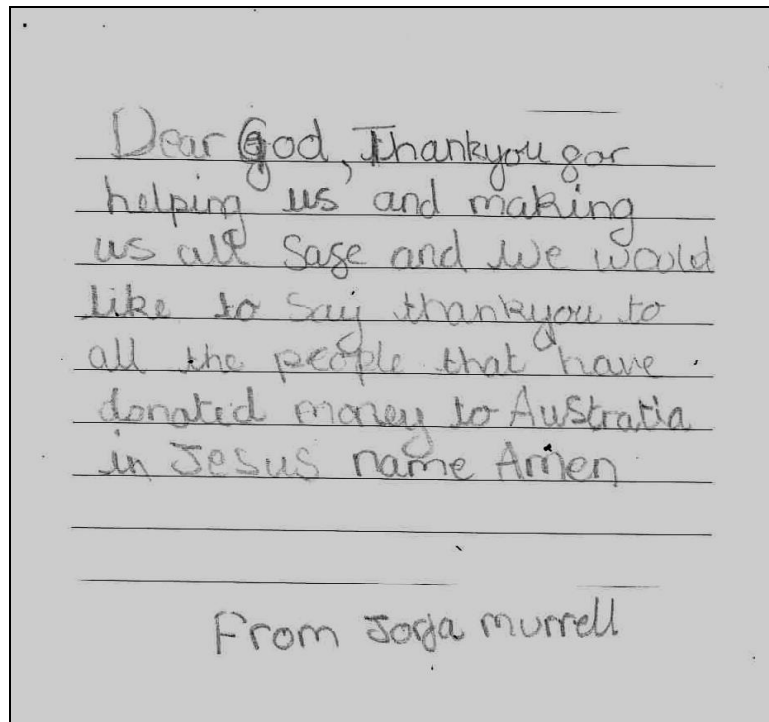 Dear God, Thankyou gor
helping us and making
us all sage and we would
like to say thankyou to
all the people that have
donated money to Australia
in Jesus name Amen
From Jorja murrell